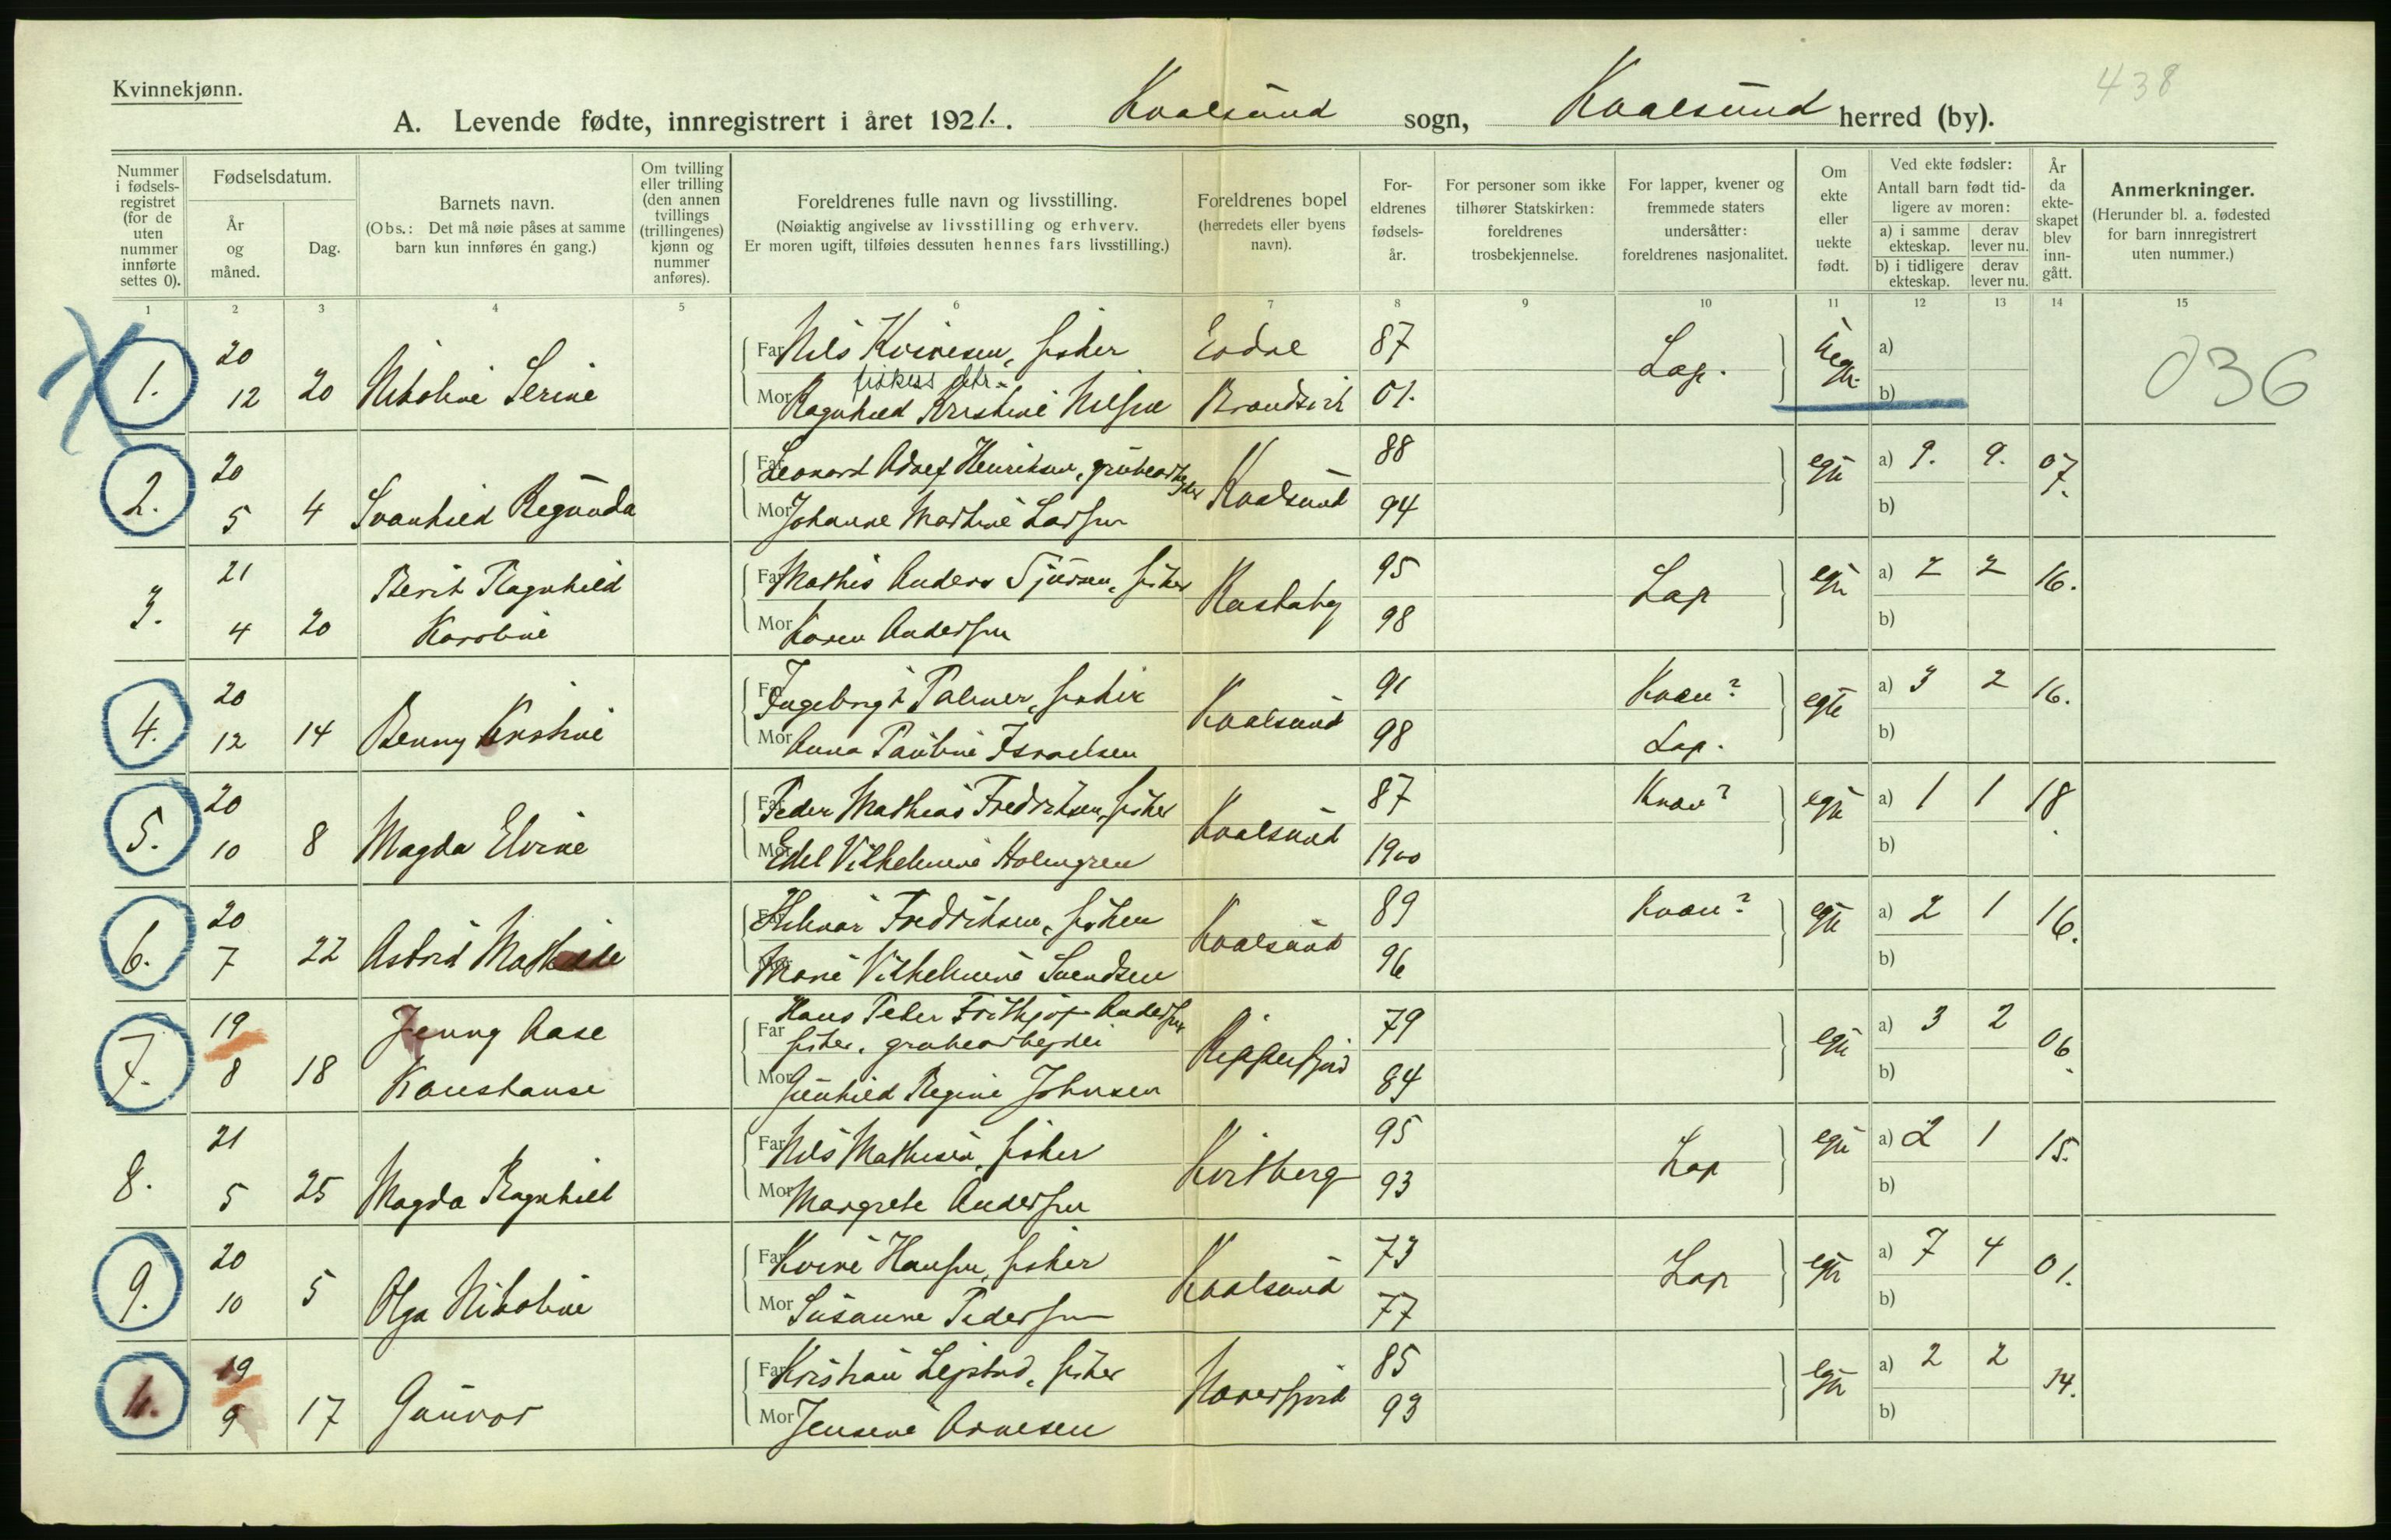 438
Kvinnekjønn.
A. Levende fødte, innregistrert i året 1921. Kvalsund sogn, Kvalsund herred (by).
Nummer i fødselsregistret (for de uten nummer innførte settes 0).
Fødselsdatum.
År og måned.
Dag.
Barnets navn.
(Obs.: Det må nøie påses at samme barn kun innføres én gang.)
Om tvilling eller trilling (den annen tvillings (trillingenes) kjønn og nummer anføres).
Foreldrenes fulle navn og livsstilling.
(Nøiaktig angivelse av livsstilling og erhverv.
Er moren ugift, tilføies dessuten hennes fars livsstilling.)
Foreldrenes bopel
(herredets eller byens navn).
Foreldrenes fødselsår.
For personer som ikke tilhører Statskirken: foreldrenes trosbekjennelse.
For lapper, kvener og fremmede staters undersåtter: foreldrenes nasjonalitet.
Om ekte eller uekte født.
Ved ekte fødsler:
Antall barn født tidligere av moren:
a) i samme ekteskap.
derav lever nu.
b) i tidligere ekteskap.
derav lever nu.
År da ekteskapet blev inngått.
Anmerkninger.
(Herunder bl. a. fødested for barn innregistrert uten nummer.)
1 2 3 4 5 6 7 8 9 10 11 12 13 14 15
1. 20 12 20 Nikoline Serine
Far Nils fisker 87
Mor fiskers dtr. Ragnhild Kristine Nilsen 01.
Lap. uegte a) b) 036
2. 20 5 4 Svanhild Regunda
Far Leonard Adolf Henriksen, grubearbeider Kvalsund 88
Mor Johanne Martine Larsen 94
egte a) 9. 9. 07. b)
3. 21 4 20 Berit Ragnhild Karoline
Far Mathis Anders Sjursen, fisker 95
Mor Karen Andersen 98
Lap egte a) 2 2 16. b)
4. 20 12 14 Benny Kristine
Far Ingebrigt Palmer, fisker Kvalsund 91 Kvæn?
Mor Anna Pauline Israelsen 98 Lap.
egte a) 3 2 16. b)
5. 20 10 8 Magda Elvine
Far Peder Mathias Fredriksen, fisker Kvalsund 87 Kvæn?
Mor Edel Vilhelmine Holmgren 1900
egte a) 1 1 18. b)
6. 20 7 22 Astrid Mathilde
Far Hilmar Fredriksen, fisker Kvalsund 89 Kvæn?
Mor Marie Vilhelmine Svendsen 96
egte a) 2 1 16. b)
7. 19 8 18 Jenny Aase Konstanse
Far Hans Peder Frithjof Andersen fisker, grubearbejder Repparfjord 79
Mor Gunhild Regine Johnsen 84
egte a) 3 2 06. b)
8. 21 5 25 Magda Ragnhild
Far Nils Mathisen, fisker 95
Mor Margrete Andersen 93
Lap egte a) 2 1 15. b)
9. 20 10 5 Olga Nikoline
Far Kvive Hansen, fisker Kvalsund 73
Mor Susanne Pedersen 77
Lap egte a) 7 4 01. b)
19 9 17 Gunvor
Far Kristian fisker 85
Mor Jensine Arnesen 93
egte a) 2 2 14. b)